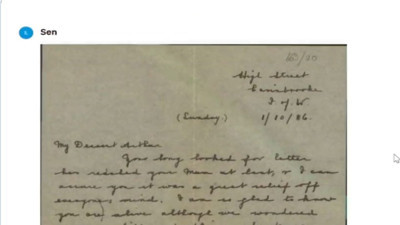 Sen
High Street
Carisbrooke
I of W
(Sunday.) 1/10/86.
My Dearest Arthur
Your long looked for letter
has reached your Mam at last, & I can
assure you it was a great relief off
everyones mind. I am so glad to know
you are alive although we wondered